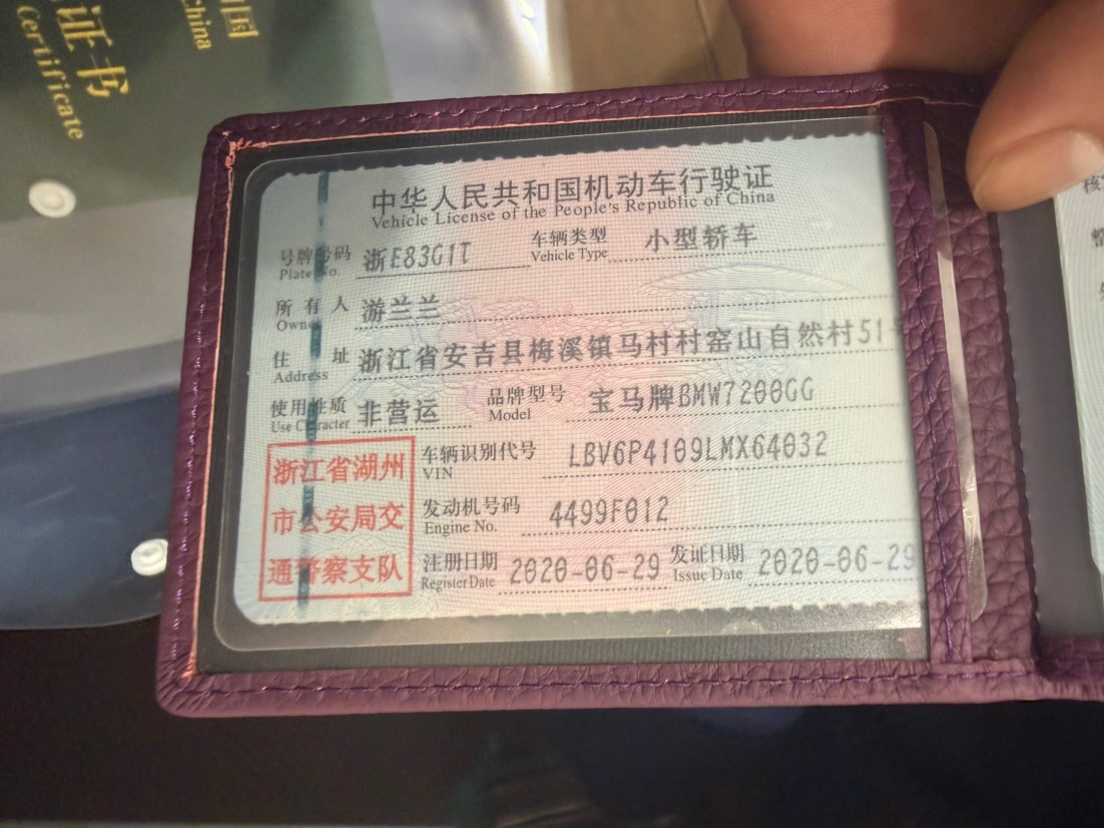 证书
Certificate
国
China
中华人民共和国机动车行驶证
Vehicle License of the People's Republic of China
号牌号码 浙E83G1T 车辆类型 小型轿车
Plate No. Vehicle Type
所有人 游兰兰
Owner
住址 浙江省安吉县梅溪镇马村村窑山自然村51
Address
使用性质 非营运 品牌型号 宝马牌BMW7200GG
Use Character Model
浙江省湖州
市公安局交
通警察支队
车辆识别代号 LBV6P4109LMX64032
VIN
发动机号码 4499F012
Engine No.
注册日期 2020-06-29 发证日期 2020-06-29
Register Date Issue Date